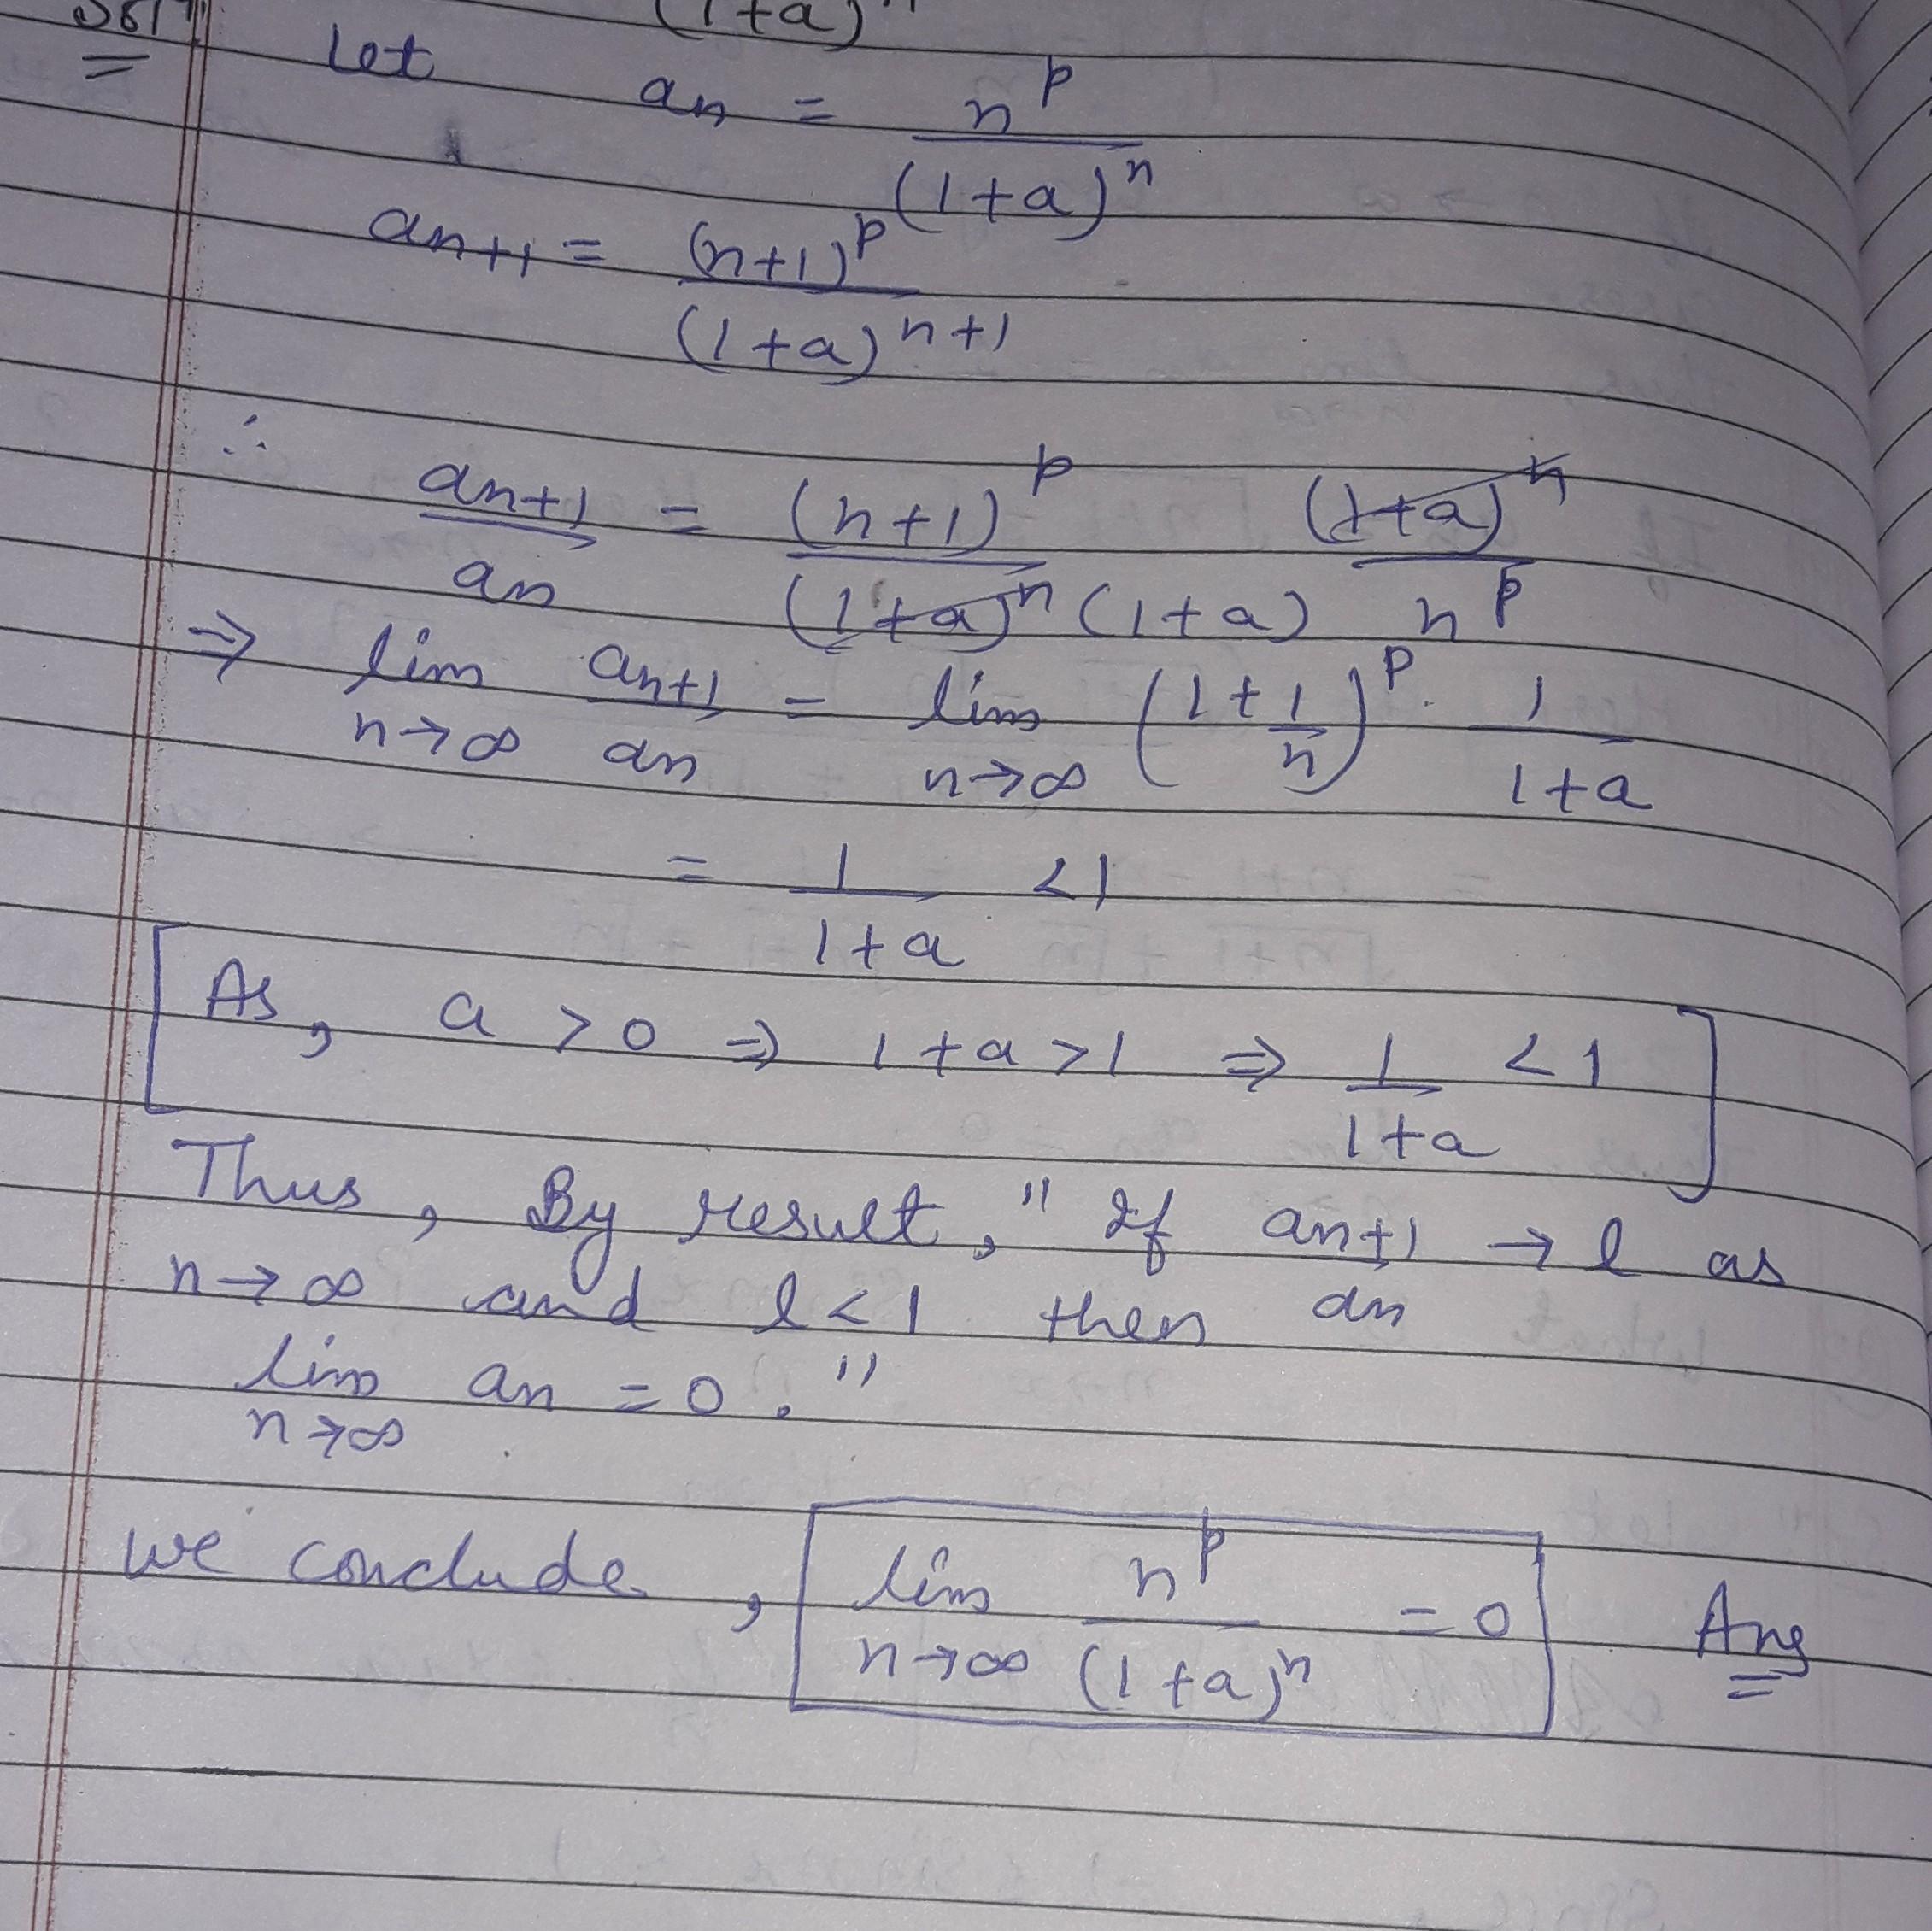 (1+a)ⁿ
Solⁿ Let aₙ = nᵖ / (1+a)ⁿ
aₙ₊₁ = (n+1)ᵖ / (1+a)ⁿ⁺¹
∴ aₙ₊₁ / aₙ = (n+1)ᵖ / (1+a)ⁿ (1+a) (1+a)ⁿ / nᵖ
⇒ lim n→∞ aₙ₊₁ / aₙ = lim n→∞ (1 + 1/n)ᵖ · 1 / 1+a
= 1 / 1+a < 1
[As, a > 0 ⇒ 1+a > 1 ⇒ 1 / 1+a < 1]
Thus, By result, " If aₙ₊₁ / aₙ → l as
n→∞ and l < 1 then
lim n→∞ aₙ = 0. "
we conclude, lim n→∞ nᵖ / (1+a)ⁿ = 0 Ans